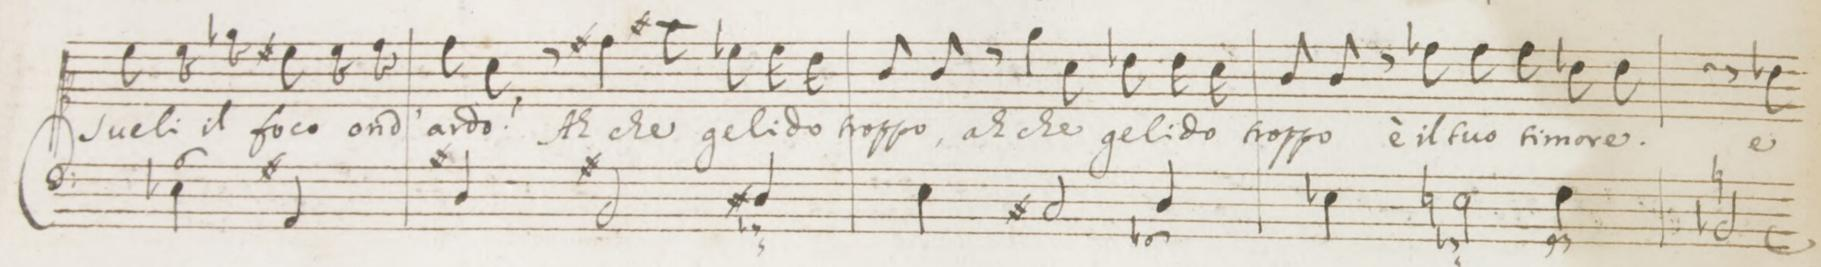 sueli il foco ond' ardo! Ah che gelido troppo, ah che gelido troppo è il tuo timore. e